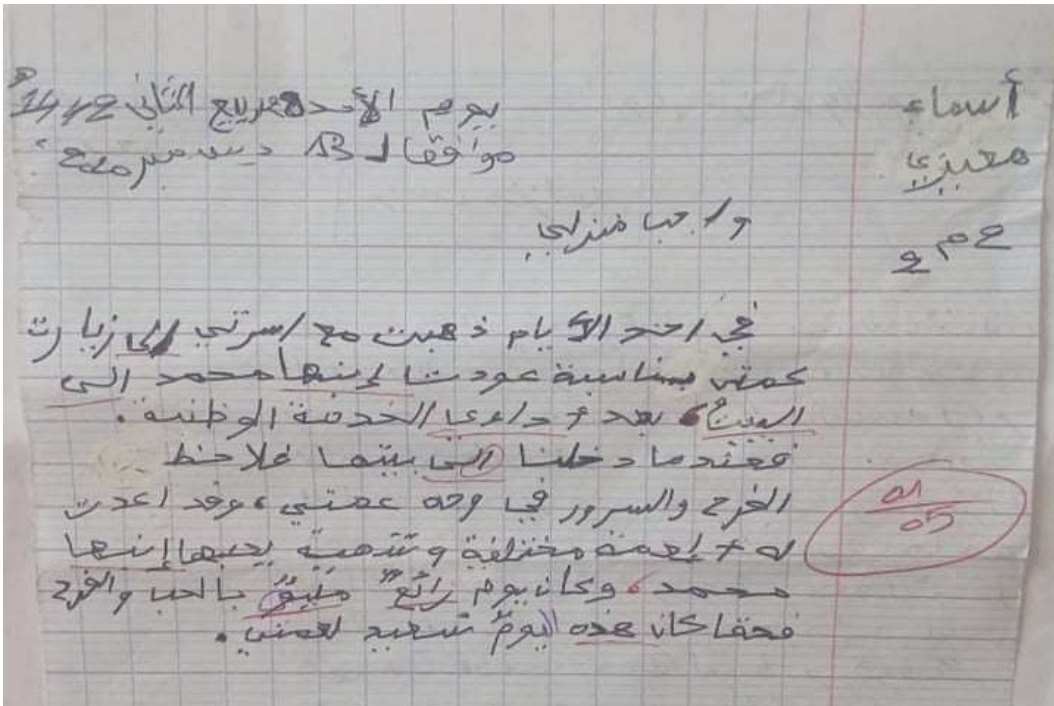 أسماء
معيزي
2م2
يوم الأحد ربيع الثاني 1442هـ
موافقا لـ 13 ديسمبر 2020
واجب منزلي
في احد الأيام ذهبت مع اسرتي الى زيارت
عمتي بمناسبة عودت إبنها محمد الى
بعد الخدمة الوطنية.
فعندما دخلنا الى بيتها فلاحظ
الفرح والسرور في وجه عمتي، وقد اعدت
له مختلفة يحبها إبنها
محمد، وكان يوم رائع بالحب والفرح
فحقا كان هذه اليوم سعيد لعمتي.
01
05